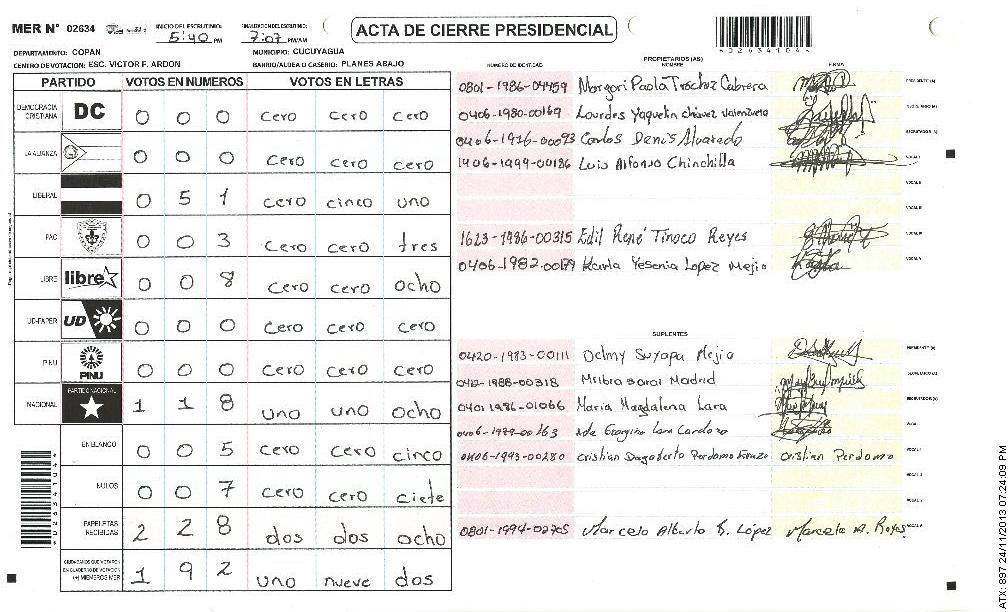 MER N° 02634 INICIO DEL ESCRUTINIO: 5:40 PM FINALIZACION DEL ESCRUTINIO: 7:07 PM/AM ACTA DE CIERRE PRESIDENCIAL
DEPARTAMENTO: COPAN MUNICIPIO: CUCUYAGUA
CENTRO DE VOTACION: ESC. VICTOR F. ARDON BARRIO/ALDEA O CASERIO: PLANES ABAJO
PARTIDO VOTOS EN NUMEROS VOTOS EN LETRAS
DEMOCRACIA CRISTIANA DC 0 0 0 cero cero cero
LA ALIANZA 0 0 0 cero cero cero
LIBERAL 0 5 1 cero cinco uno
PAC 0 0 3 cero cero tres
LIBRE libre 0 0 8 cero cero ocho
UD-FAPER UD 0 0 0 cero cero cero
PINU PINU 0 0 0 cero cero cero
NACIONAL PARTIDO NACIONAL 1 1 8 uno uno ocho
EN BLANCO 0 0 5 cero cero cinco
NULOS 0 0 7 cero cero ciete
PAPELETAS RECIBIDAS 2 2 8 dos dos ocho
CIUDADANOS QUE VOTARON EN CUADERNO DE VOTACION (+) MIEMBROS MER 1 9 2 uno nueve dos
PROPIETARIOS (AS)
NUMERO DE IDENTIDAD NOMBRE FIRMA
0801-1986-04459 Margori Paola Trochez Cabrera
0406-1980-00169 Lourdes Yaquelin chavez Valenzuela
0406-1976-00093 Carlos Denis Alvarado
1406-1999-00186 Luis Alfonso Chinchilla VOCAL I
VOCAL II
VOCAL III
1623-1986-00315 Edil René Tinoco Reyes VOCAL IV
0406-1982-00179 Karla Yesenia Lopez Mejia VOCAL V
SUPLENTES
0420-1983-00111 Delmy Suyapa Mejia
0412-1988-00318 Madrid
0401-1986-01066 Maria Magdalena Lara
Lara Cardoza
0406-1993-00280 cristian Dagoberto Perdomo cristian Perdomo
0801-1994-02705 Marcelo Alberto R. López
ATX: 897 24/11/2013 07:24:09 PM